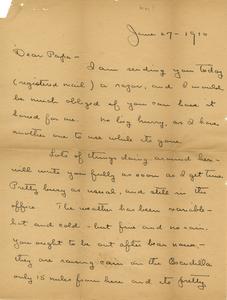 June 27 - 1910
Dear Papa -
I am sending you today
(registered mail) a razor, and I would
be much obliged if you can have it
honed for me. No big hurry, as I have
another one to use while its gone.
Lots of things doing around here -
will write you fully as soon as I get time.
Pretty busy as usual, and still in the
office. The weather has been variable -
hot and cold - but fine and no rain.
You ought to be out after bear now, -
they are raising cain on the
only 15 miles from here and its pretty